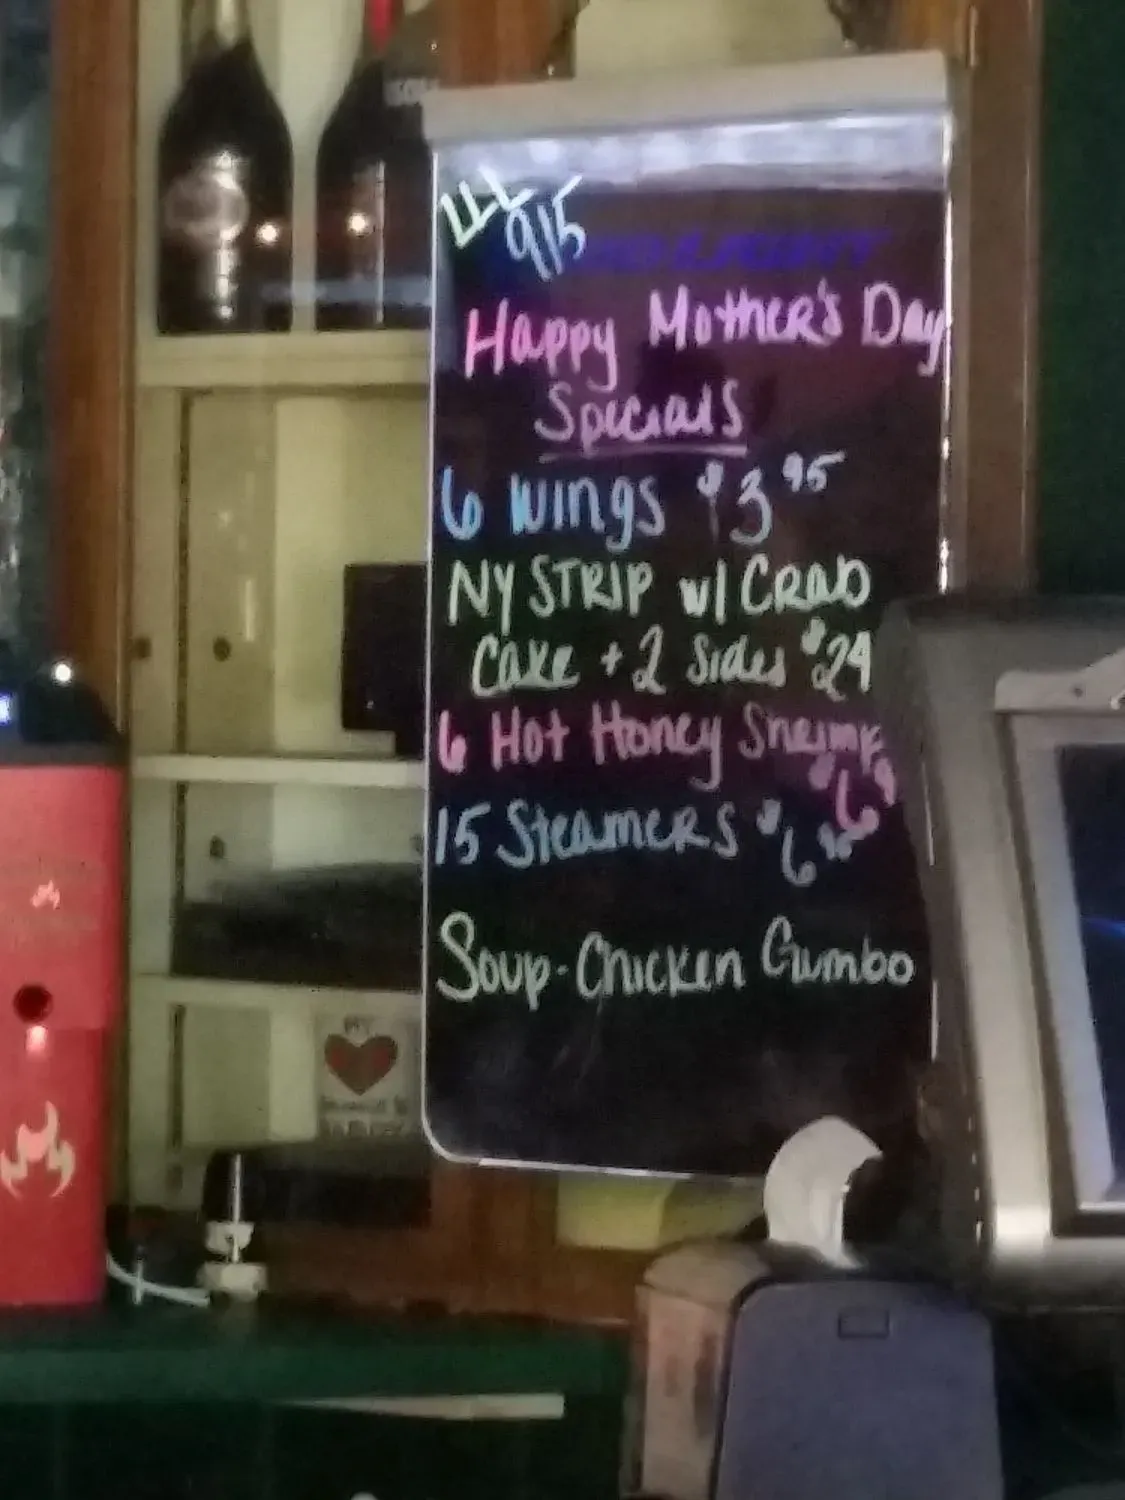 LLL
915
Happy Mother's Day
Specials
6 Wings $3.95
NY STRIP w/ CRAB
Cake + 2 Sides $24
6 Hot Honey Shrimp
15 Steamers $6.95
Soup - Chicken Gumbo
MY